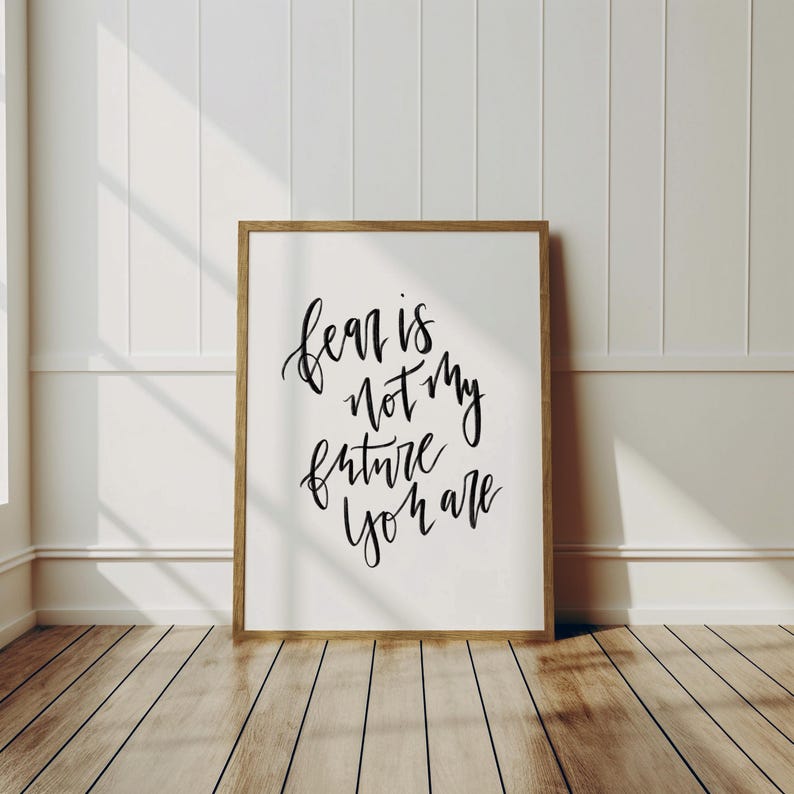 fear is
not my
future
you are